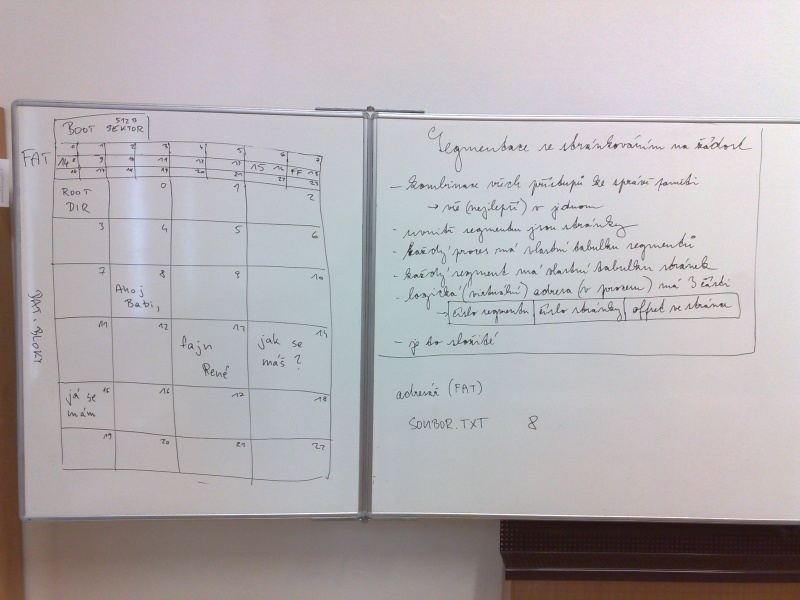 512 B
BOOT SEKTOR
FAT
0 1 2 3 4 5 6 7
14 8 9 10 11 12 13 15 14 FF 15
16 17 18 19 20 21 22 23
ROOT DIR 0 1 2
3 4 5 6
7 8 9 10
Ahoj
Babi,
DAT. BLOKY
11 12 13 14
fajn
René
jak se
máš?
15 16 17 18
já se
mám
19 20 21 22
Segmentace se stránkováním na žádost
- kombinace všech přístupů ke správě paměti
→ vše (nejlepší) v jednom
- uvnitř segmentu jsou stránky
- každý proces má vlastní tabulku segmentů
- každý segment má vlastní tabulku stránek
- logická (virtuální) adresa (v procesu) má 3 části
→ číslo segmentu | číslo stránky | offset ve stránce
- je to složité
adresář (FAT)
SOUBOR.TXT 8